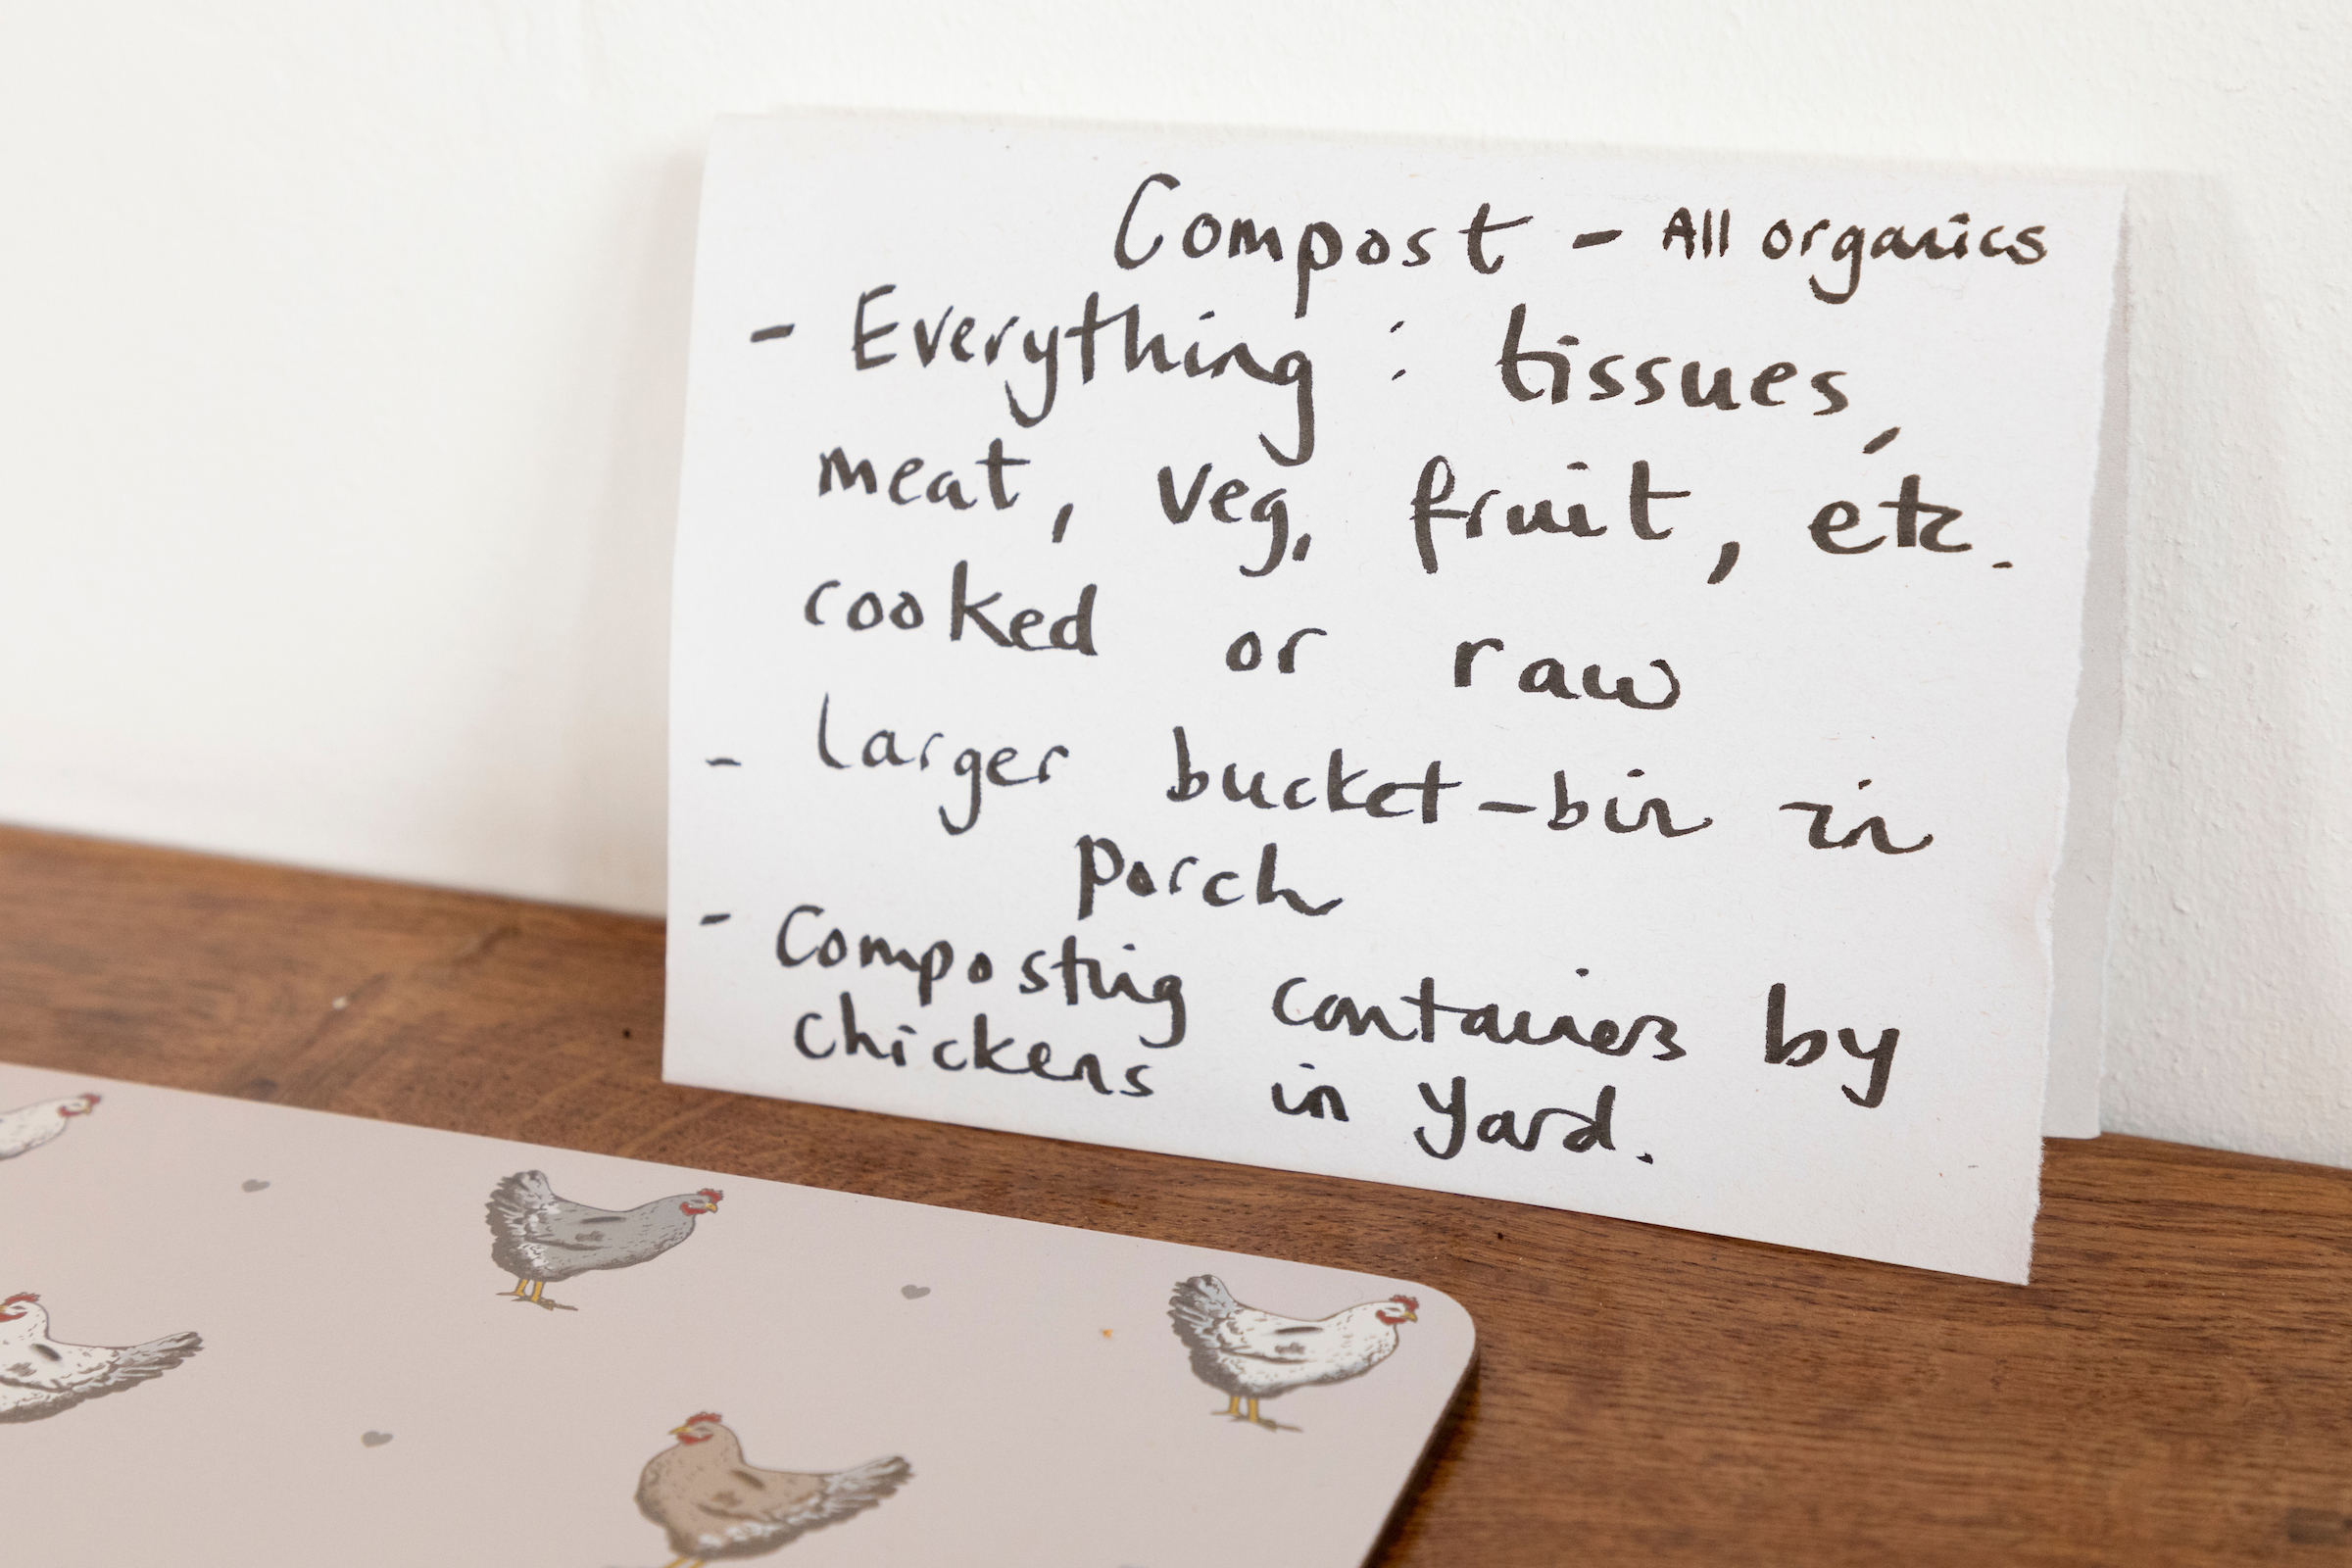 Compost - All organics
- Everything : tissues,
meat, veg, fruit, etc.
cooked or raw
- Larger bucket-bin in
porch
- Composting containers by
chickens in yard.